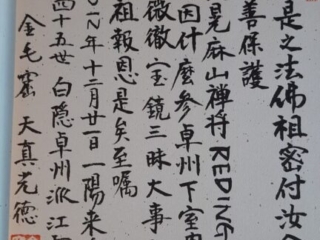 是之法佛祖密付汝今
善保護
晃麻山禅将REDING
因什麼参卓州下室内
微徹宝鏡三昧大事
祖報恩是矣至嘱
一八年十二月廿一日一陽来
四十五世 白隠卓州派江
金毛窟 天真 徳